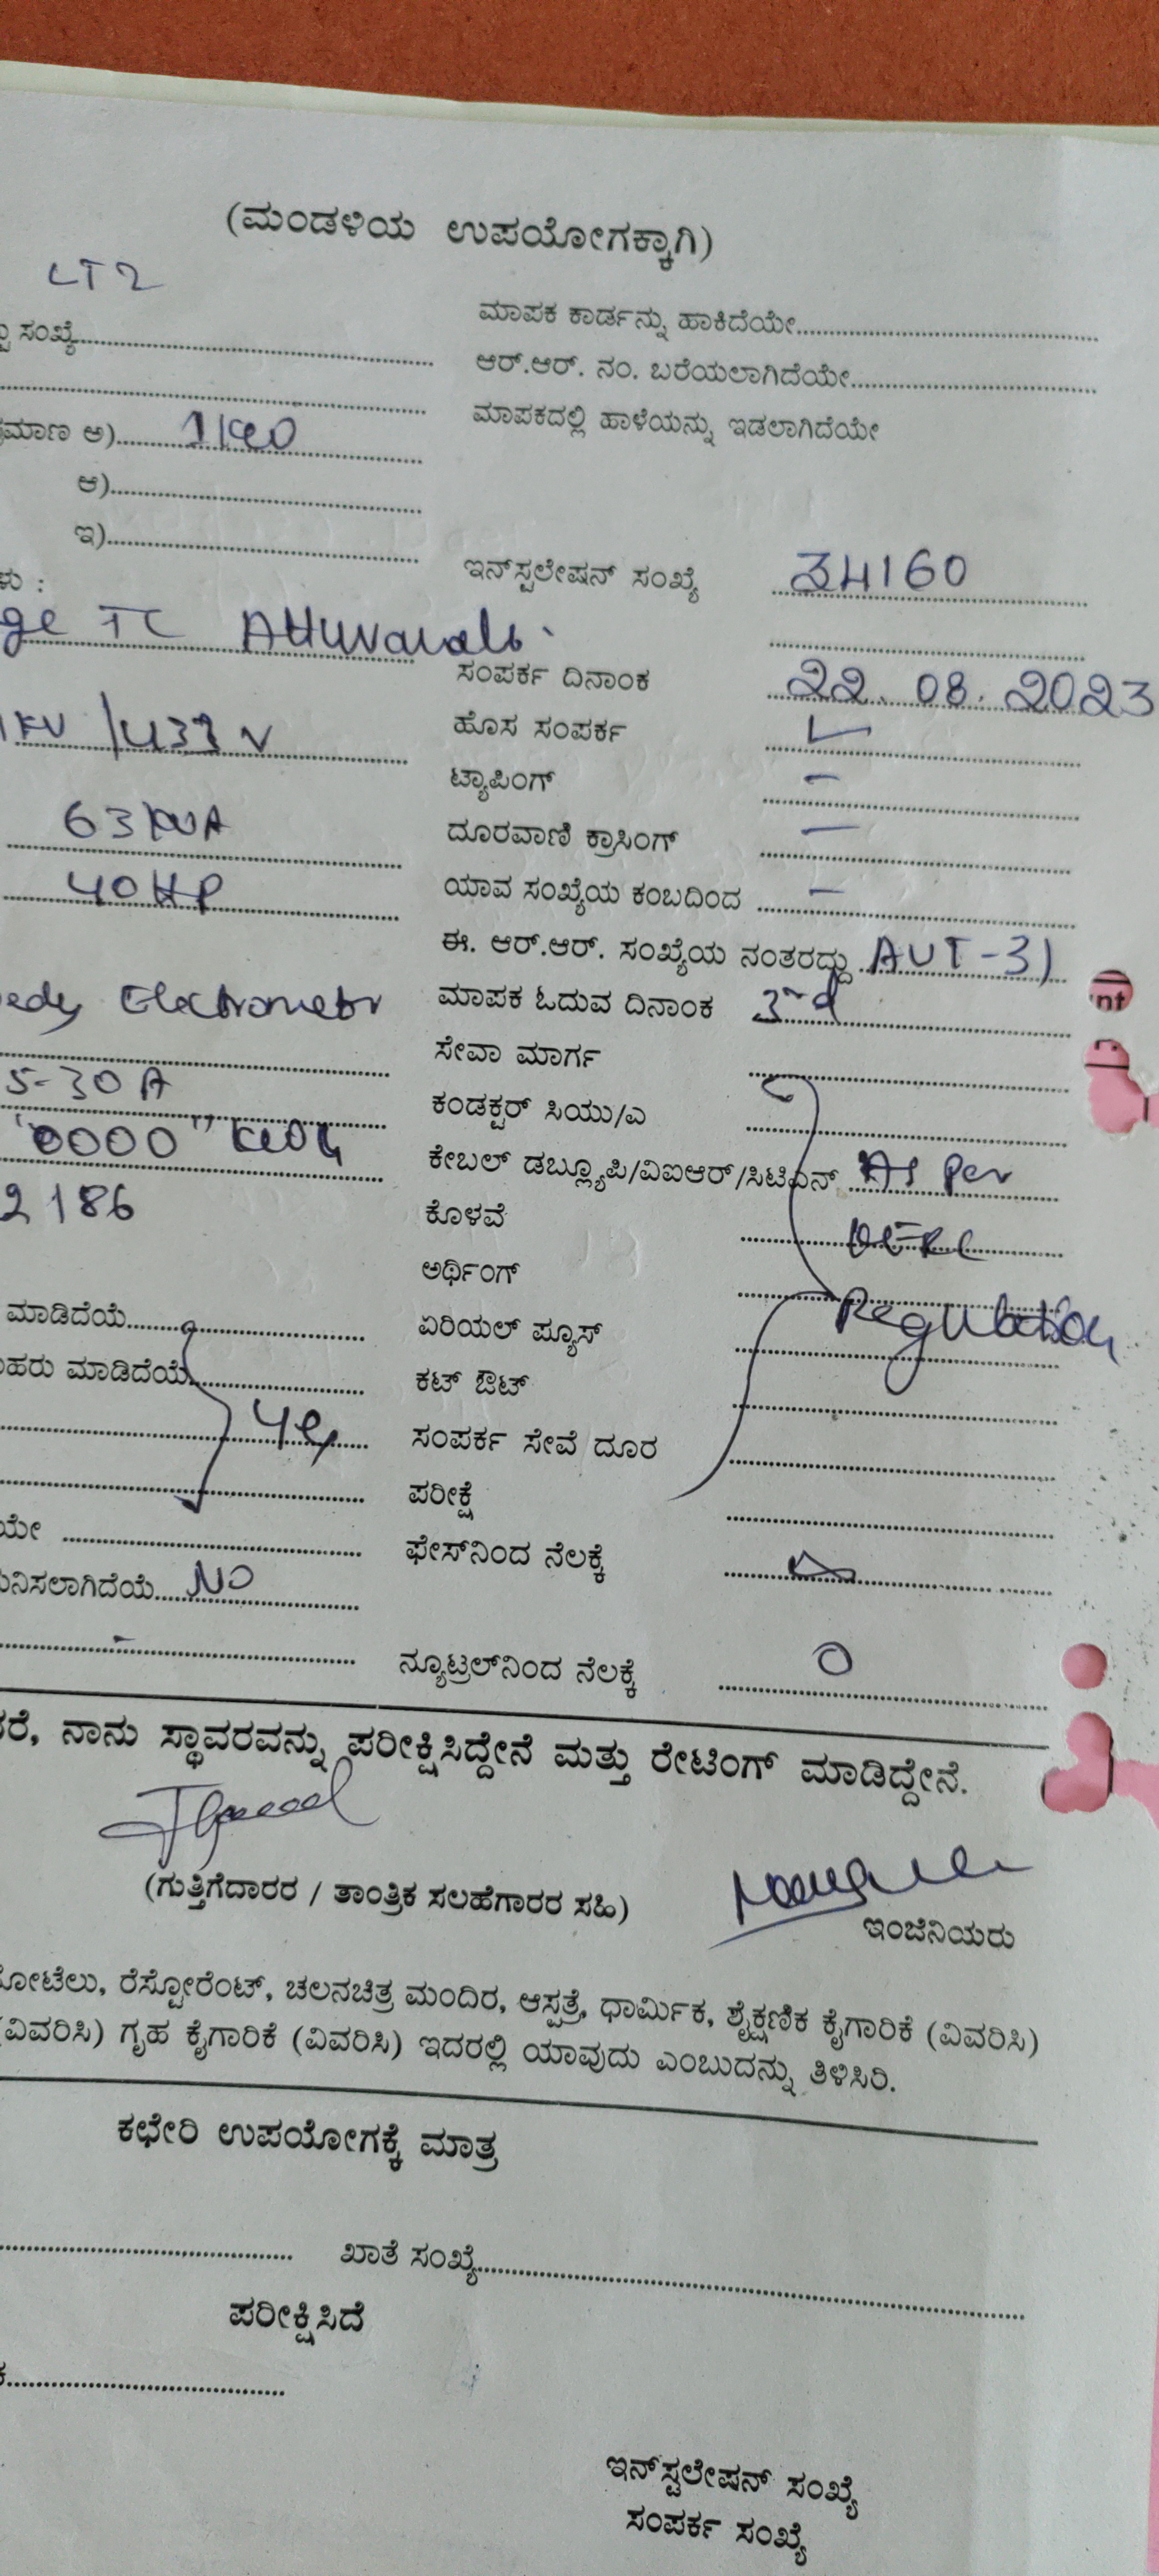 (ಮಂಡಳಿಯ ಉಪಯೋಗಕ್ಕಾಗಿ)
LT2
ಸಂಖ್ಯೆ
ಮಾಪಕ ಕಾರ್ಡನ್ನು ಹಾಕಿದೆಯೇ
ಆರ್.ಆರ್. ನಂ. ಬರೆಯಲಾಗಿದೆಯೇ
ಮಾಪಕದಲ್ಲಿ ಹಾಳೆಯನ್ನು ಇಡಲಾಗಿದೆಯೇ
ಮಾಣ ಅ)
ಆ)
ಇ)
ಇನ್‌ಸ್ಟಲೇಷನ್ ಸಂಖ್ಯೆ 34160
ಳು :
ge TC
ಸಂಪರ್ಕ ದಿನಾಂಕ 22.08.2023
KV /433 V
ಹೊಸ ಸಂಪರ್ಕ
ಟ್ಯಾಪಿಂಗ್ -
63 KVA
ದೂರವಾಣಿ ಕ್ರಾಸಿಂಗ್ -
40 HP
ಯಾವ ಸಂಖ್ಯೆಯ ಕಂಬದಿಂದ -
ಈ. ಆರ್.ಆರ್. ಸಂಖ್ಯೆಯ ನಂತರದ್ದು AUT-31
Electrometer
ಮಾಪಕ ಓದುವ ದಿನಾಂಕ 3rd
ಸೇವಾ ಮಾರ್ಗ
5-30 A
ಕಂಡಕ್ಟರ್ ಸಿಯು/ಎ
"0000" KWH
ಕೇಬಲ್ ಡಬ್ಲ್ಯೂಪಿ/ವಿಐಆರ್/ಸಿಟಿಎಸ್ As Per
2186
ಕೊಳವೆ
ಅರ್ಥಿಂಗ್ Regulation
ಮಾಡಿದೆಯೆ
ಏರಿಯಲ್ ಪ್ಯೂಸ್
ಹರು ಮಾಡಿದೆಯೆ
ಕಟ್ ಔಟ್
Yes
ಸಂಪರ್ಕ ಸೇವೆ ದೂರ
ಪರೀಕ್ಷೆ
ಯೇ
ಫೇಸ್‌ನಿಂದ ನೆಲಕ್ಕೆ
ನಿಸಲಾಗಿದೆಯೆ NO
-
ನ್ಯೂಟ್ರಲ್‌ನಿಂದ ನೆಲಕ್ಕೆ 0
ರೆ, ನಾನು ಸ್ಥಾವರವನ್ನು ಪರೀಕ್ಷಿಸಿದ್ದೇನೆ ಮತ್ತು ರೇಟಿಂಗ್ ಮಾಡಿದ್ದೇನೆ.
(ಗುತ್ತಿಗೆದಾರರ / ತಾಂತ್ರಿಕ ಸಲಹೆಗಾರರ ಸಹಿ)
ಇಂಜಿನಿಯರು
ೋಟೆಲು, ರೆಸ್ಟೋರೆಂಟ್, ಚಲನಚಿತ್ರ ಮಂದಿರ, ಆಸ್ಪತ್ರೆ, ಧಾರ್ಮಿಕ, ಶೈಕ್ಷಣಿಕ ಕೈಗಾರಿಕೆ (ವಿವರಿಸಿ)
(ವಿವರಿಸಿ) ಗೃಹ ಕೈಗಾರಿಕೆ (ವಿವರಿಸಿ) ಇದರಲ್ಲಿ ಯಾವುದು ಎಂಬುದನ್ನು ತಿಳಿಸಿರಿ.
ಕಛೇರಿ ಉಪಯೋಗಕ್ಕೆ ಮಾತ್ರ
ಖಾತೆ ಸಂಖ್ಯೆ
ಪರೀಕ್ಷಿಸಿದೆ
ಇನ್‌ಸ್ಟಲೇಷನ್ ಸಂಖ್ಯೆ
ಸಂಪರ್ಕ ಸಂಖ್ಯೆ